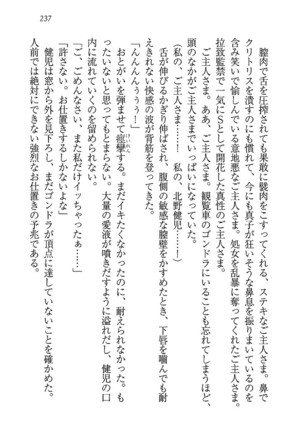 237
膣肉で舌を圧搾されても果敢に襞肉をこすってくれる、ステキなご主人さま。鼻で
クリトリスを潰すのにも慣れて、今にも真子が狂いそうな鼻息を振りまいているのを
含み笑いで愉しんでいる意地悪なご主人さま。処女を乱暴に奪ってくれたご主人さま。
拉致監禁で一気にSとして開花した真性のご主人さま。
ご主人さま。ああ、ご主人さま。観覧車のゴンドラにいることも忘れてしまうほど、
頭のなかがご主人さまでいっぱいになっていた。
(私の、ご主人さま……！　私の、北野健児……！)
舌が伸びるかぎり伸ばされ、腹側の敏感な膣壁をかすめたとき、下唇を噛んでも耐
えきれない快感の波が背筋を登ってきた。
「んんんんぅぅぅう！」
おとがいを弾ませて痙攣する。まだイキたくなかったのに、耐えられなかった。も
ったいないと思ってもとまらない。大量の愛液が噴きだすように溢れだし、健児の口
内に流れていくのを留められない。
「ごめんなさい、まだ私だけイッちゃったぁ……」
「許さない。お仕置きするしかないよな」
健児は窓から外を見下ろし、まだゴンドラが頂点に達していないことを確かめた。
人前では絶対にできない強烈なお仕置きの予兆である。